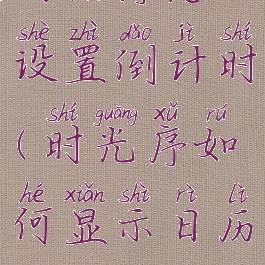 shè zhì dǎo jì shí
设置倒计时
shí guāng xǔ rú
(时光序如
hé xiǎn shì rì lì
何显示日历